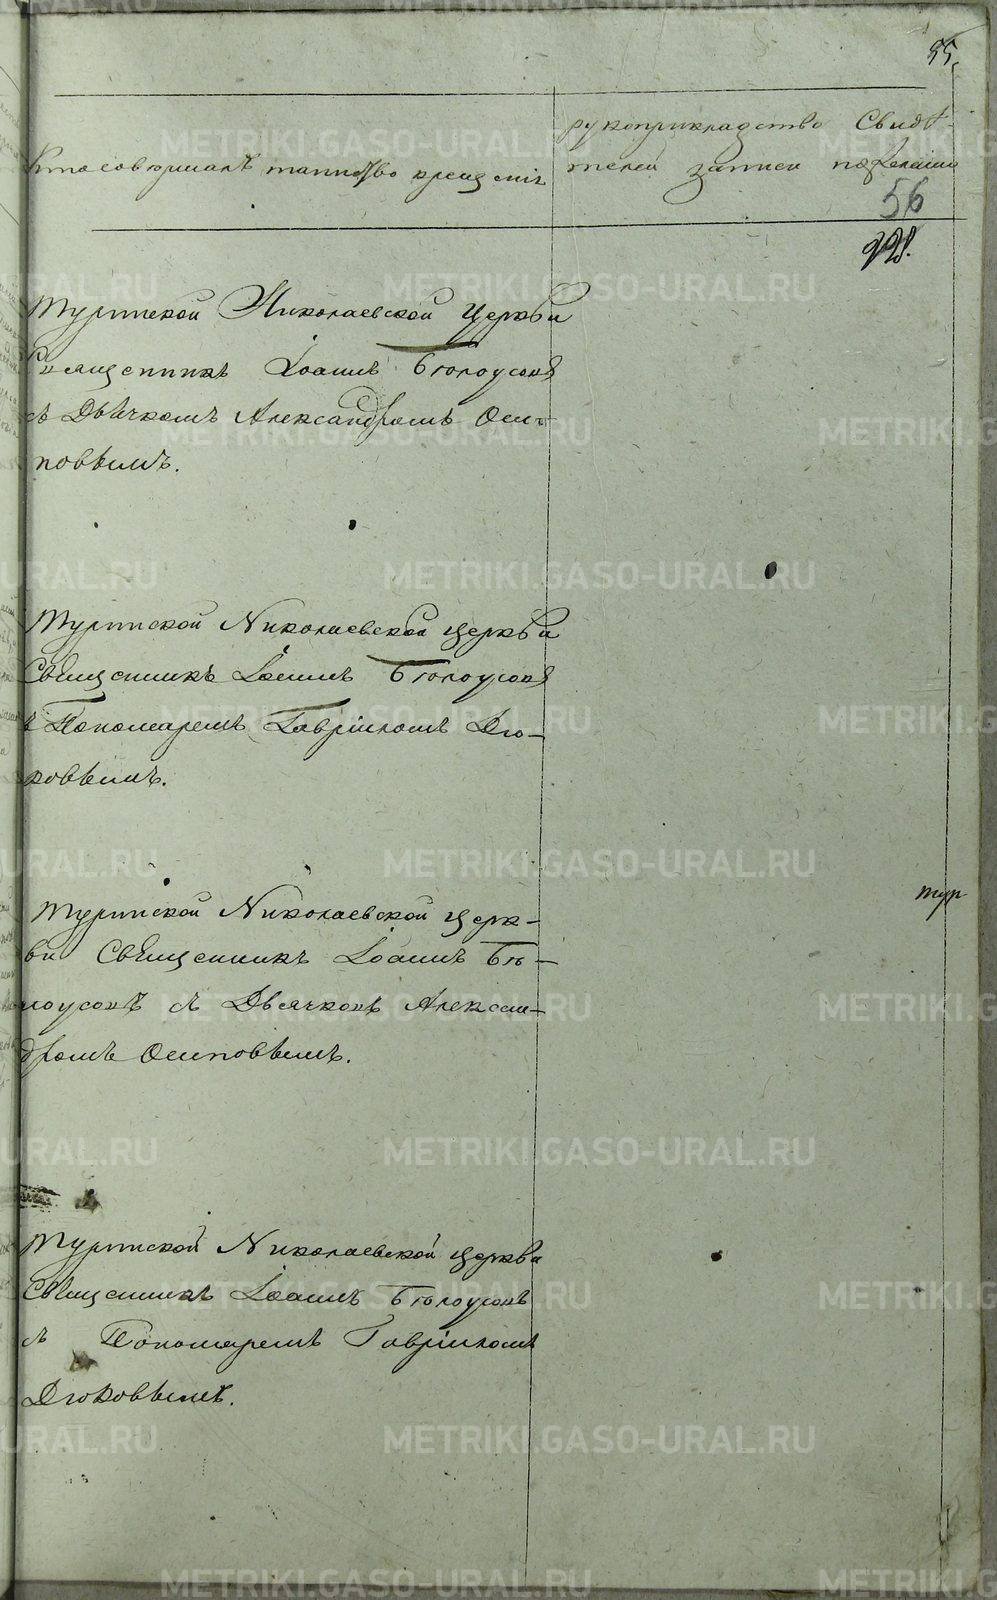 55.
Кто совершалъ таинство крещенія
рукоприкладство Свидѣ-
телей записи по желанію
56
Туринской Николаевской Церкви
Священникъ Іоаннъ Бѣлоусовъ
съ Дьячкомъ Александромъ Оси-
повымъ.
Туринской Николаевской церкви
Священникъ Іоаннъ Бѣлоусовъ
съ Пономаремъ Гавріиломъ Дю-
ковымъ.
Туринской Николаевской Церк-
ви Священникъ Іоаннъ Бѣ-
лоусовъ съ Дьячкомъ Алексан-
дромъ Осиповымъ.
тур
Туринской Николаевской церкви
Священникъ Іоаннъ Бѣлоусовъ
съ Пономаремъ Гавріиломъ
Дюковымъ.
METRIKI.GASO-URAL.RU